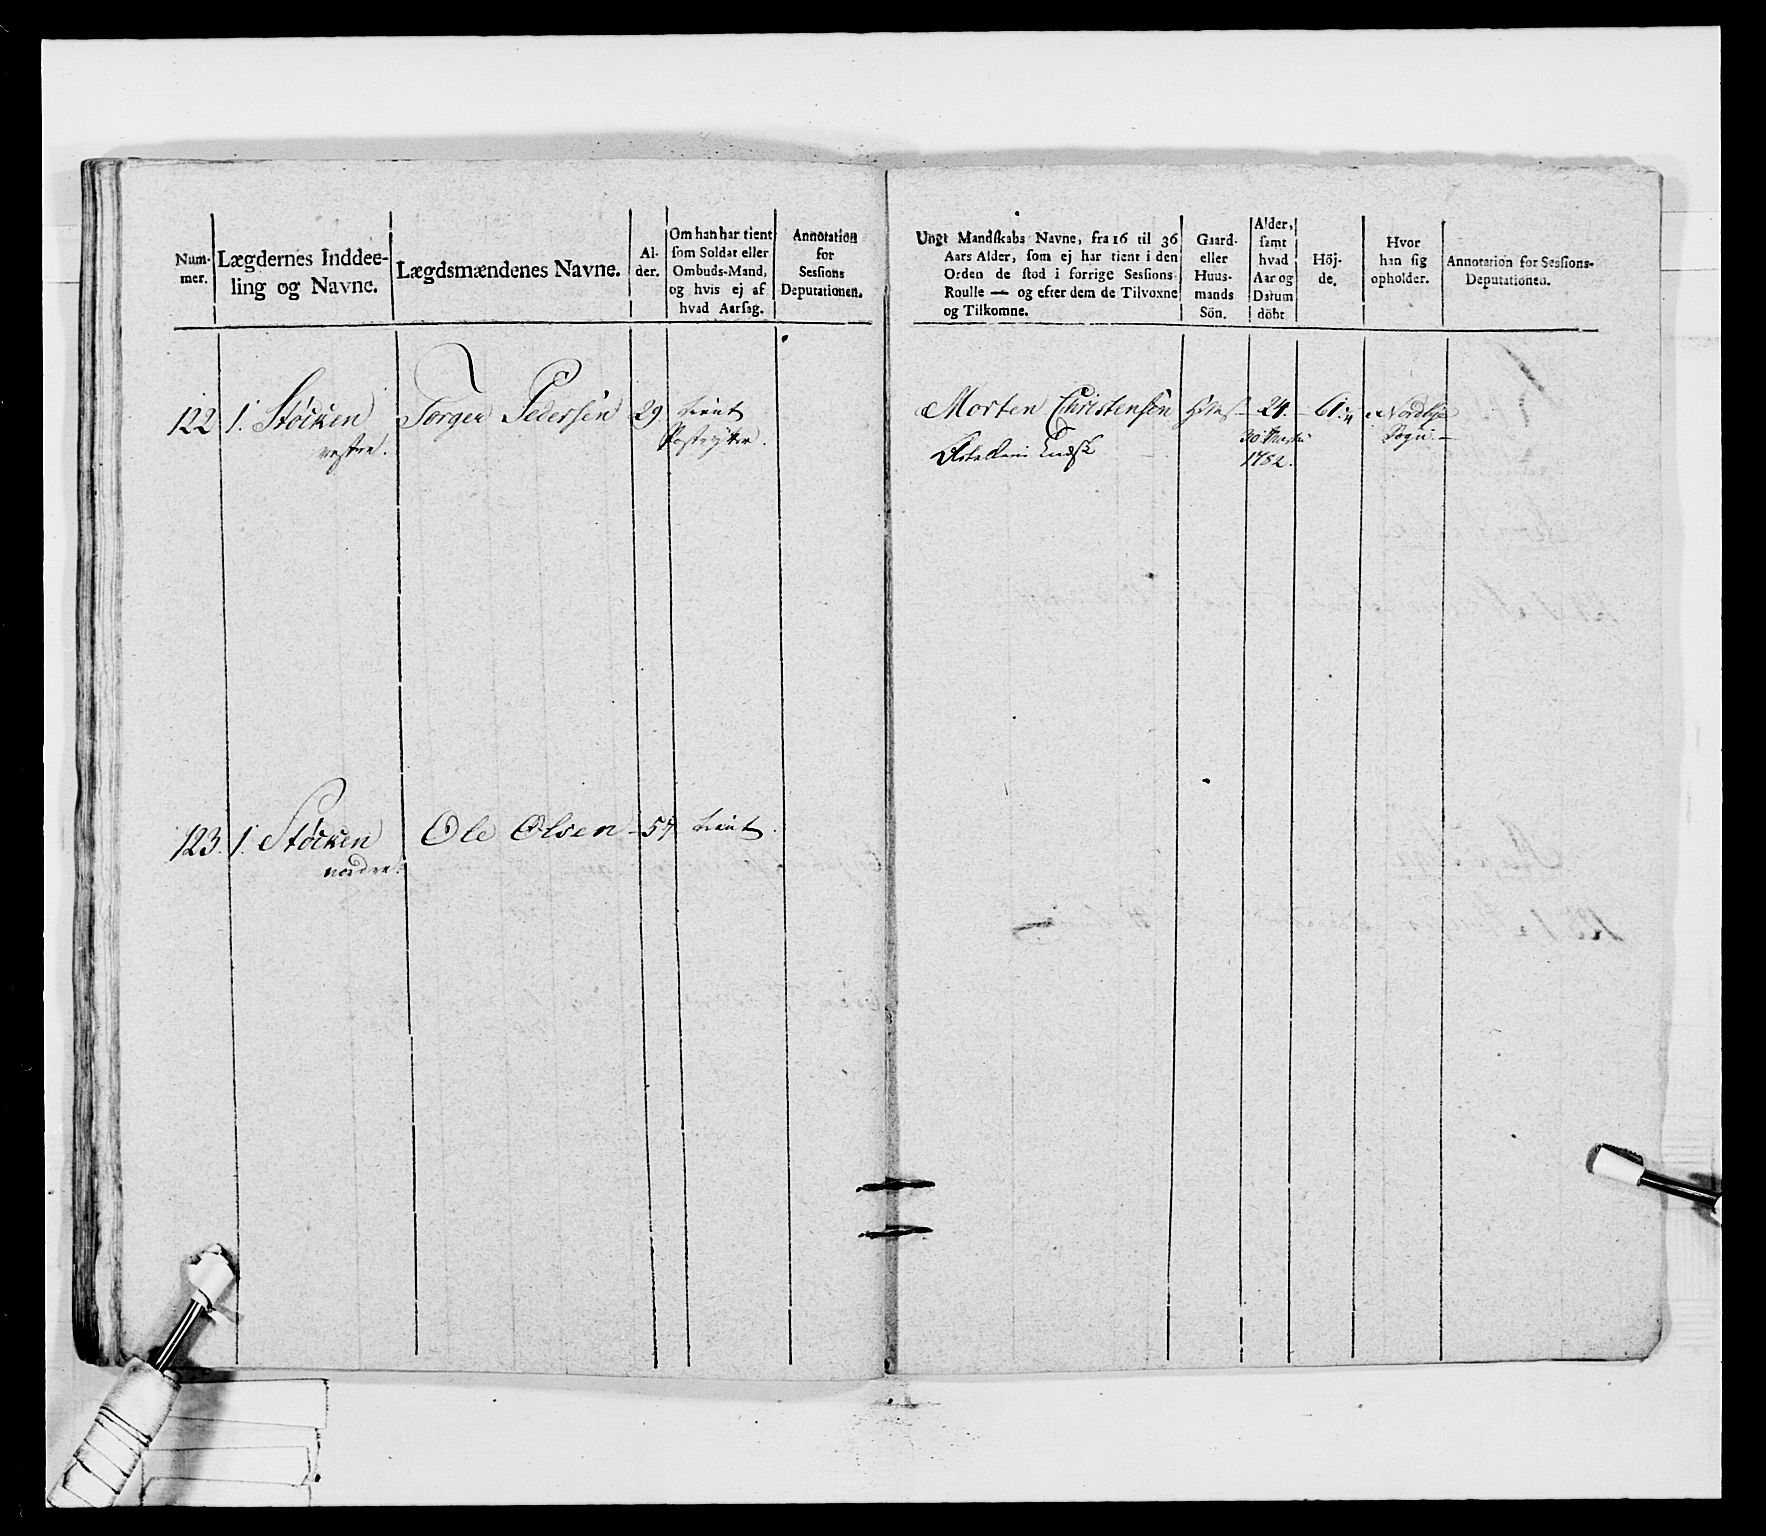 Num-
mer.
Lægdernes Inddee-
ling og Navne.
Lægdsmændenes Navne.
Al-
der.
Om han har tient
som Soldat eller
Ombuds-Mand,
og hvis ej af
hvad Aarsag.
Annotation
for
Sessions
Deputationen.
122 1. Støcken Torger Pedersen 29. tient
vestre.
123. 1. Støcken Ole Olsen 57 tient.
nordre.
Ungt Mandskabs Navne, fra 16 til 36
Aars Alder, som ej har tient i den
Orden de stod i forrige Sessions
Roulle — og efter dem de Tilvoxne
og Tilkomne.
Gaard-
eller
Huus-
mands
Sön.
Alder,
samt
hvad
Aar og
Datum
döbt
Höj-
de.
Hvor
han sig
opholder.
Annotation for Sessions-
Deputationen.
Morten Christensen 24. 61.
30 Martii Sogn.
1782.